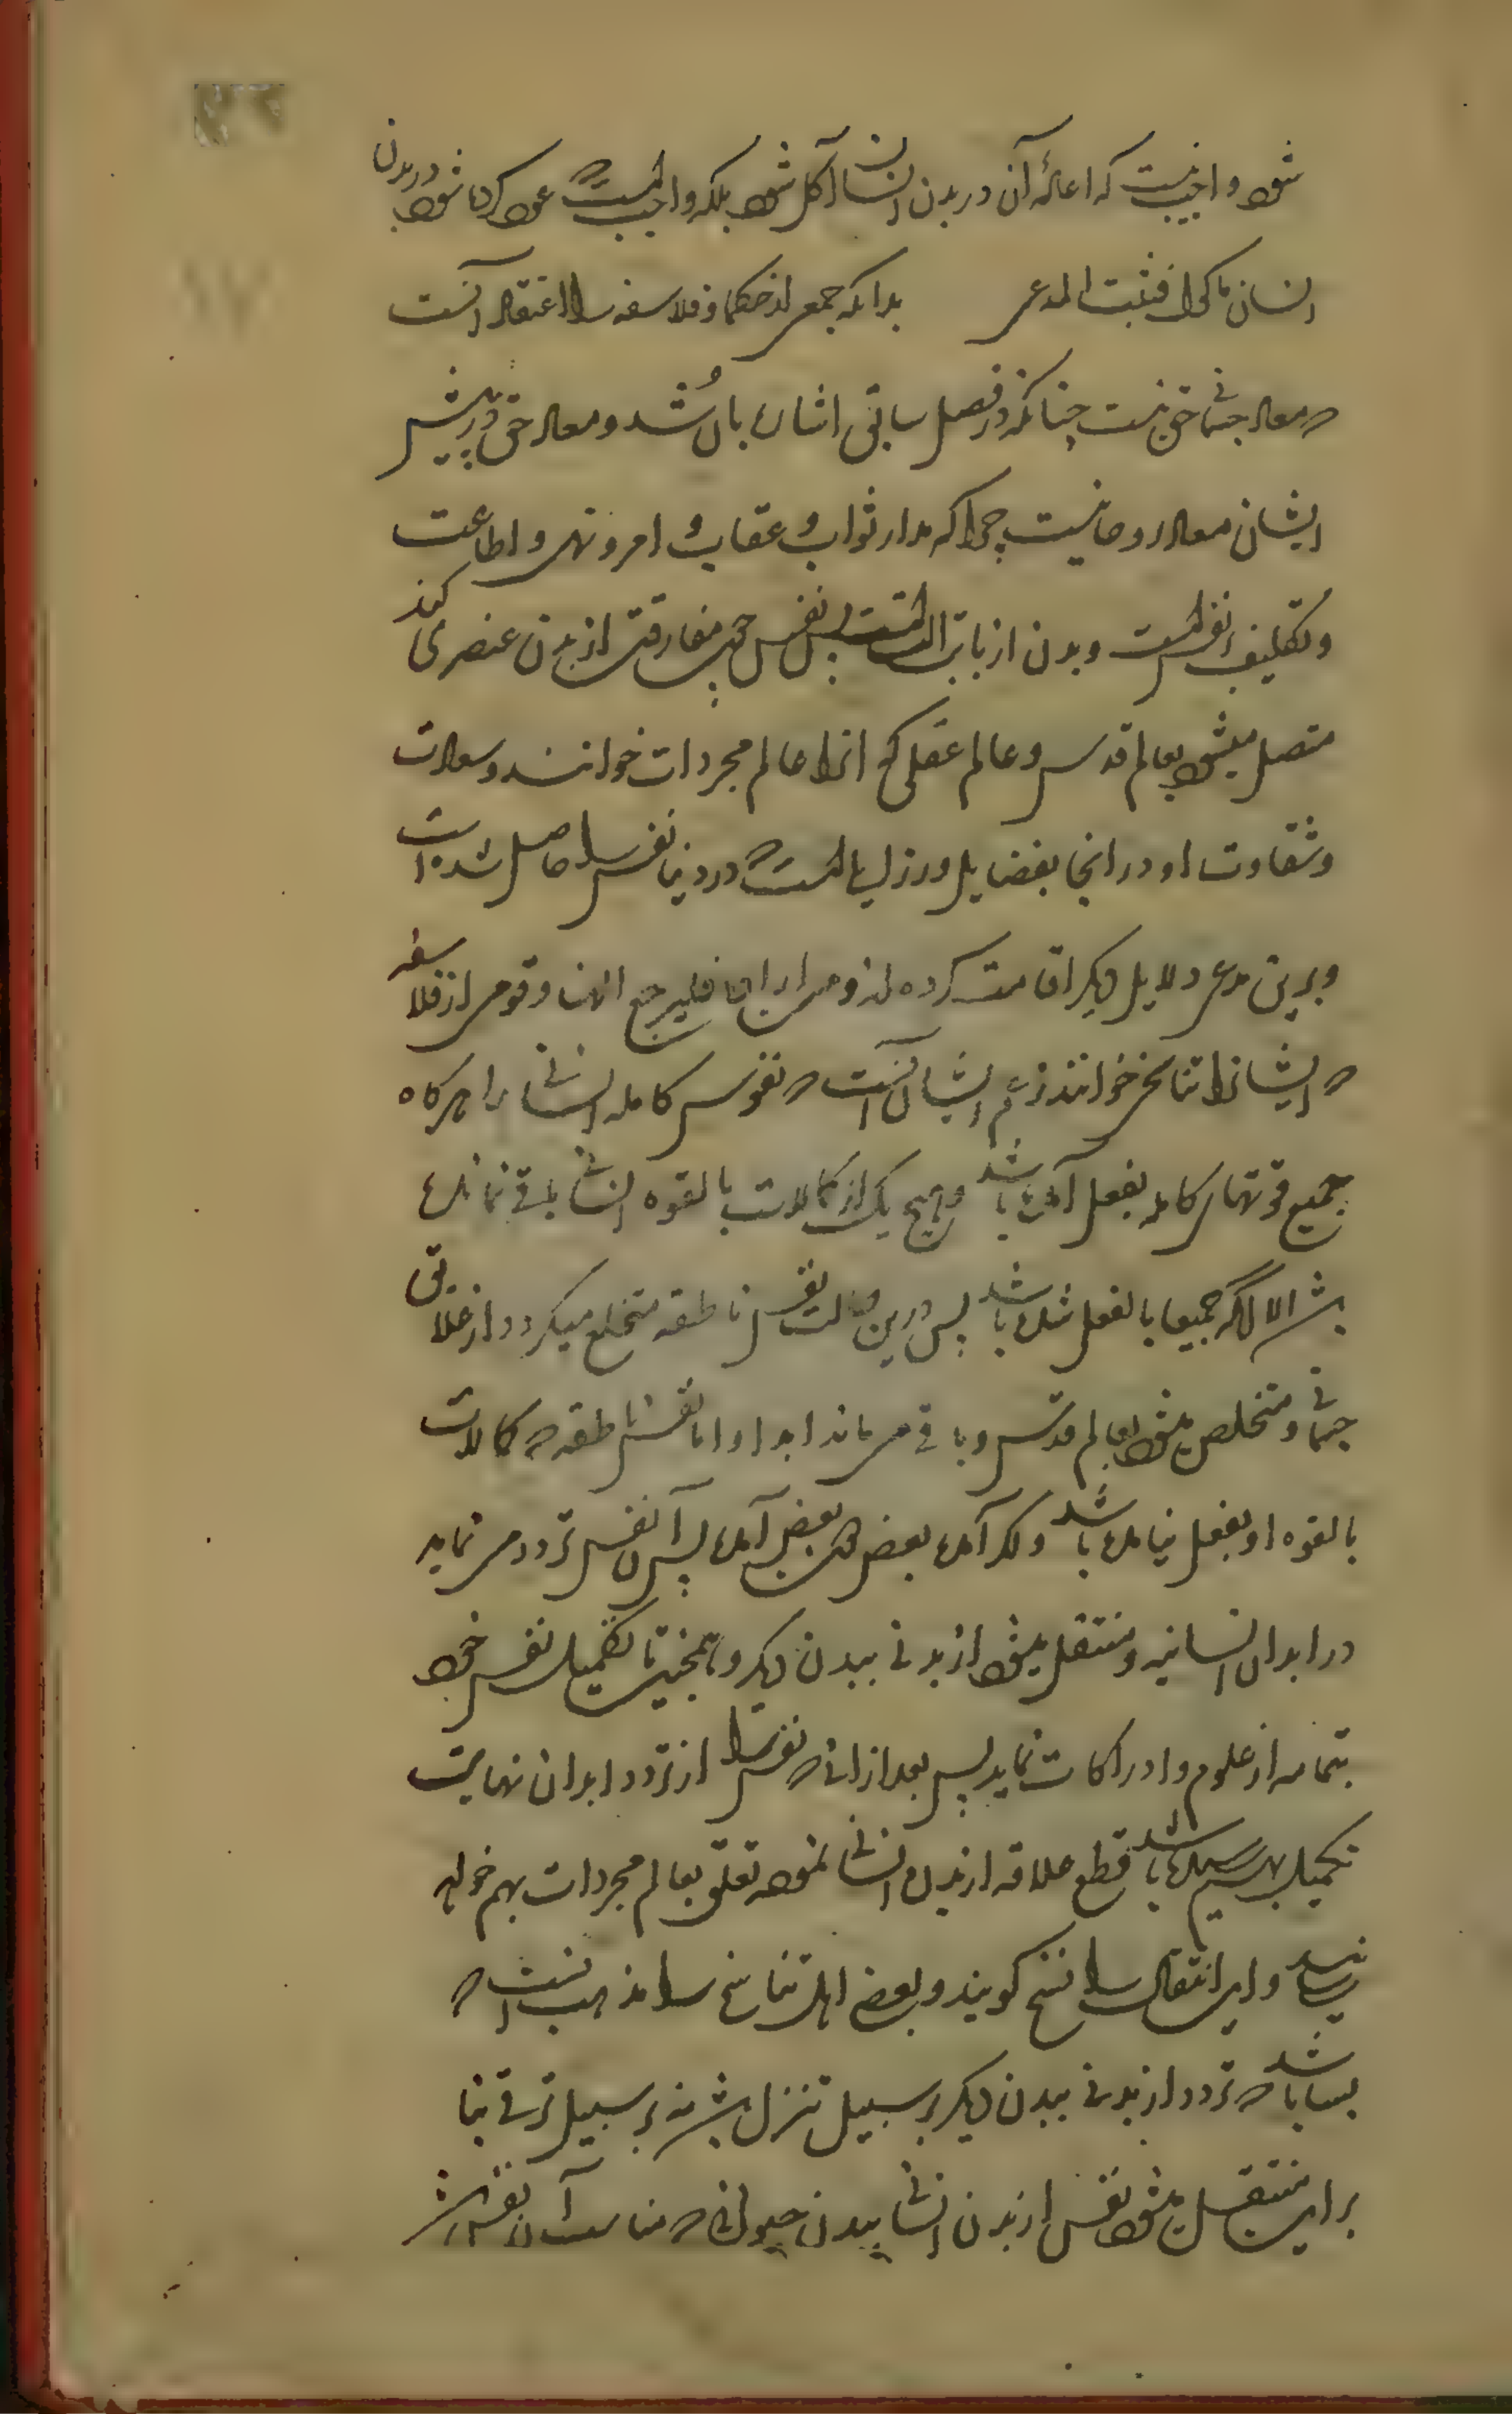 شود واجب نیست که اعاده آن در بدن انسان آکل شود بلکه واجب است که عود کرده شود در بدن
انسان ماکول فثبت المدعی بدانکه جمعی از حکما و فلاسفه را اعتقاد آنست
که معاد جسمانی حق نیست چنانکه در فصل سابق اشاره بآن شد و معاد حق در پیش
ایشان معاد روحانیست چرا که مدار ثواب و عقاب و امر و نهی و اطاعت
و تکلیف نفس است و بدن از باب آلتست پس نفس چون مفارقت از بدن عنصری کند
متصل میشود بعالم قدس و عالم عقلی که انرا عالم مجردات خوانند و سعادت
و شقاوت او در انجا بفضایل و رذایل است که در دنیا نفس را حاصل شده است
و برین مدعی دلایل دیگر اقامت کرده اند و من اراد فلیرجع الیها و قومی از فلاسفه
که ایشانرا تناسخی خوانند زعم ایشان آنست که نفوس کامله انسانی را هرگاه
جمیع قوتهای کامله بفعل آمده باشد و هیچ یک از کمالات بالقوه انسانی باقی نمانده
باشد الا انکه جمیعا بالفعل شده باشد پس درین وقت نفس ناطقه متخلع میگردد از علایق
جسمانی و متخلص میشود بعالم قدس و باقی می ماند ابدا و اما نفس ناطقه که کمالات
بالقوه او بفعل نیامده باشد و اگر آمده بعضی دون بعضی آمده پس آن نفس تردد می نماید
در ابدان انسانیه و منتقل میشود از بدنی ببدن دیگر و همچنین تا تکمیل نفس خود
بتمامه از علوم و ادراکات نماید پس بعد از انکه نفس را از تردد ابدان نهایت
تکمیل بهم رسیده باشد قطع علاقه از بدن انسانی نموده تعلق بعالم مجردات بهم خواهد
رسانید و این انتقال را نسخ گویند و بعضی اهل تناسخ را مذهب انست که
بسا باشد که تردد از بدنی ببدن دیگر بر سبیل تنزل باشد نه بر سبیل ترقی بنا
براین منتقل میشود نفس از بدن انسانی ببدن حیوانی که مناسب آن نفس باشد